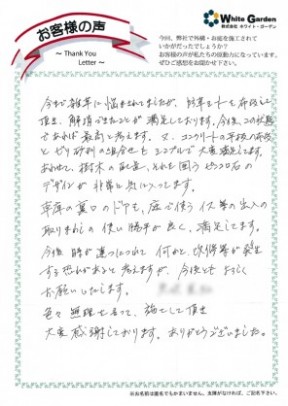 お客様の声
～ Thank You
Letter ～
White Garden
株式会社 ホワイト・ガーデン
今回、弊社で外構・お庭を施工されて
いかがだったでしょうか？
お客様の声が私たちの原動力になっています。
ぜひご感想をお聞かせ下さい。
今まで雑草に悩まされましたが、防草シートを
頂き、解消できたことが満足しております。今後、この状態
であれば最高と考えます。又、コンクリートの平板の
と砂利の組合せもシンプルで大変満足してます。
あわせて、樹木の配置、それを囲うピンコロ石の
デザインが非常に気にいってます。
車庫の裏口のドアも、庭で使うイス等の出入の
取りまわしの使い勝手が良く、満足してます。
今後、時が違うにつれて何かと、故障等が発生
する恐れがあると考えますが、今後ともよろしく
お願いいたします。
色々無理を言って、施工して頂き
大変感謝しております。ありがとうございました。
※お名前は匿名でもかまいません。